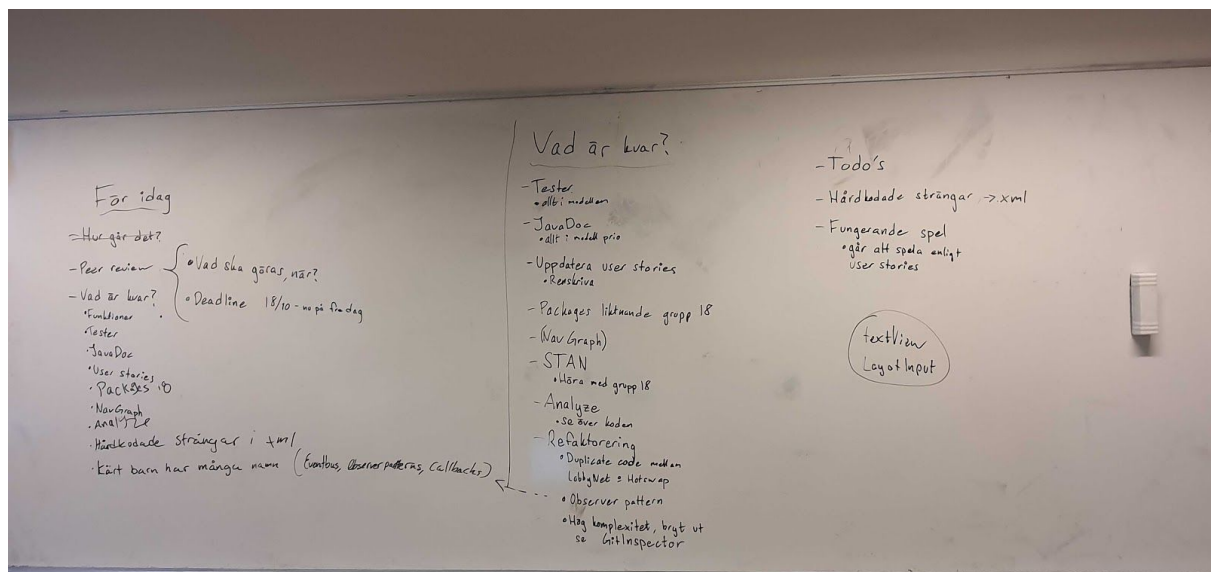 För idag
- Hur går det?
- Peer review
• Vad ska göras, när?
• Deadline 18/10 - nu på fredag
- Vad är kvar?
• Funktioner
• Tester
• JavaDoc
• User stories
• Packages 18
• NavGraph
• Analyze
• Hårdkodade strängar i xml
• Kärt barn har många namn (Eventbus, Observer patterns, Callbacks)
Vad är kvar?
- Tester
• allt i modellen
- JavaDoc
• allt i modell prio
- Uppdatera user stories
• Renskriva
- Packages liknande grupp 18
- (Nav Graph)
- STAN
• Höra med grupp 18
- Analyze
• se över koden
- Refaktorering
• Duplicate code mellan
LobbyNet & Hotswap
• Observer pattern
• Hög komplexitet, bryt ut
se GitInspector
- Todo's
- Hårdkodade strängar -> xml
- Fungerande spel
• går att spela enligt
user stories
textView
LayotInput